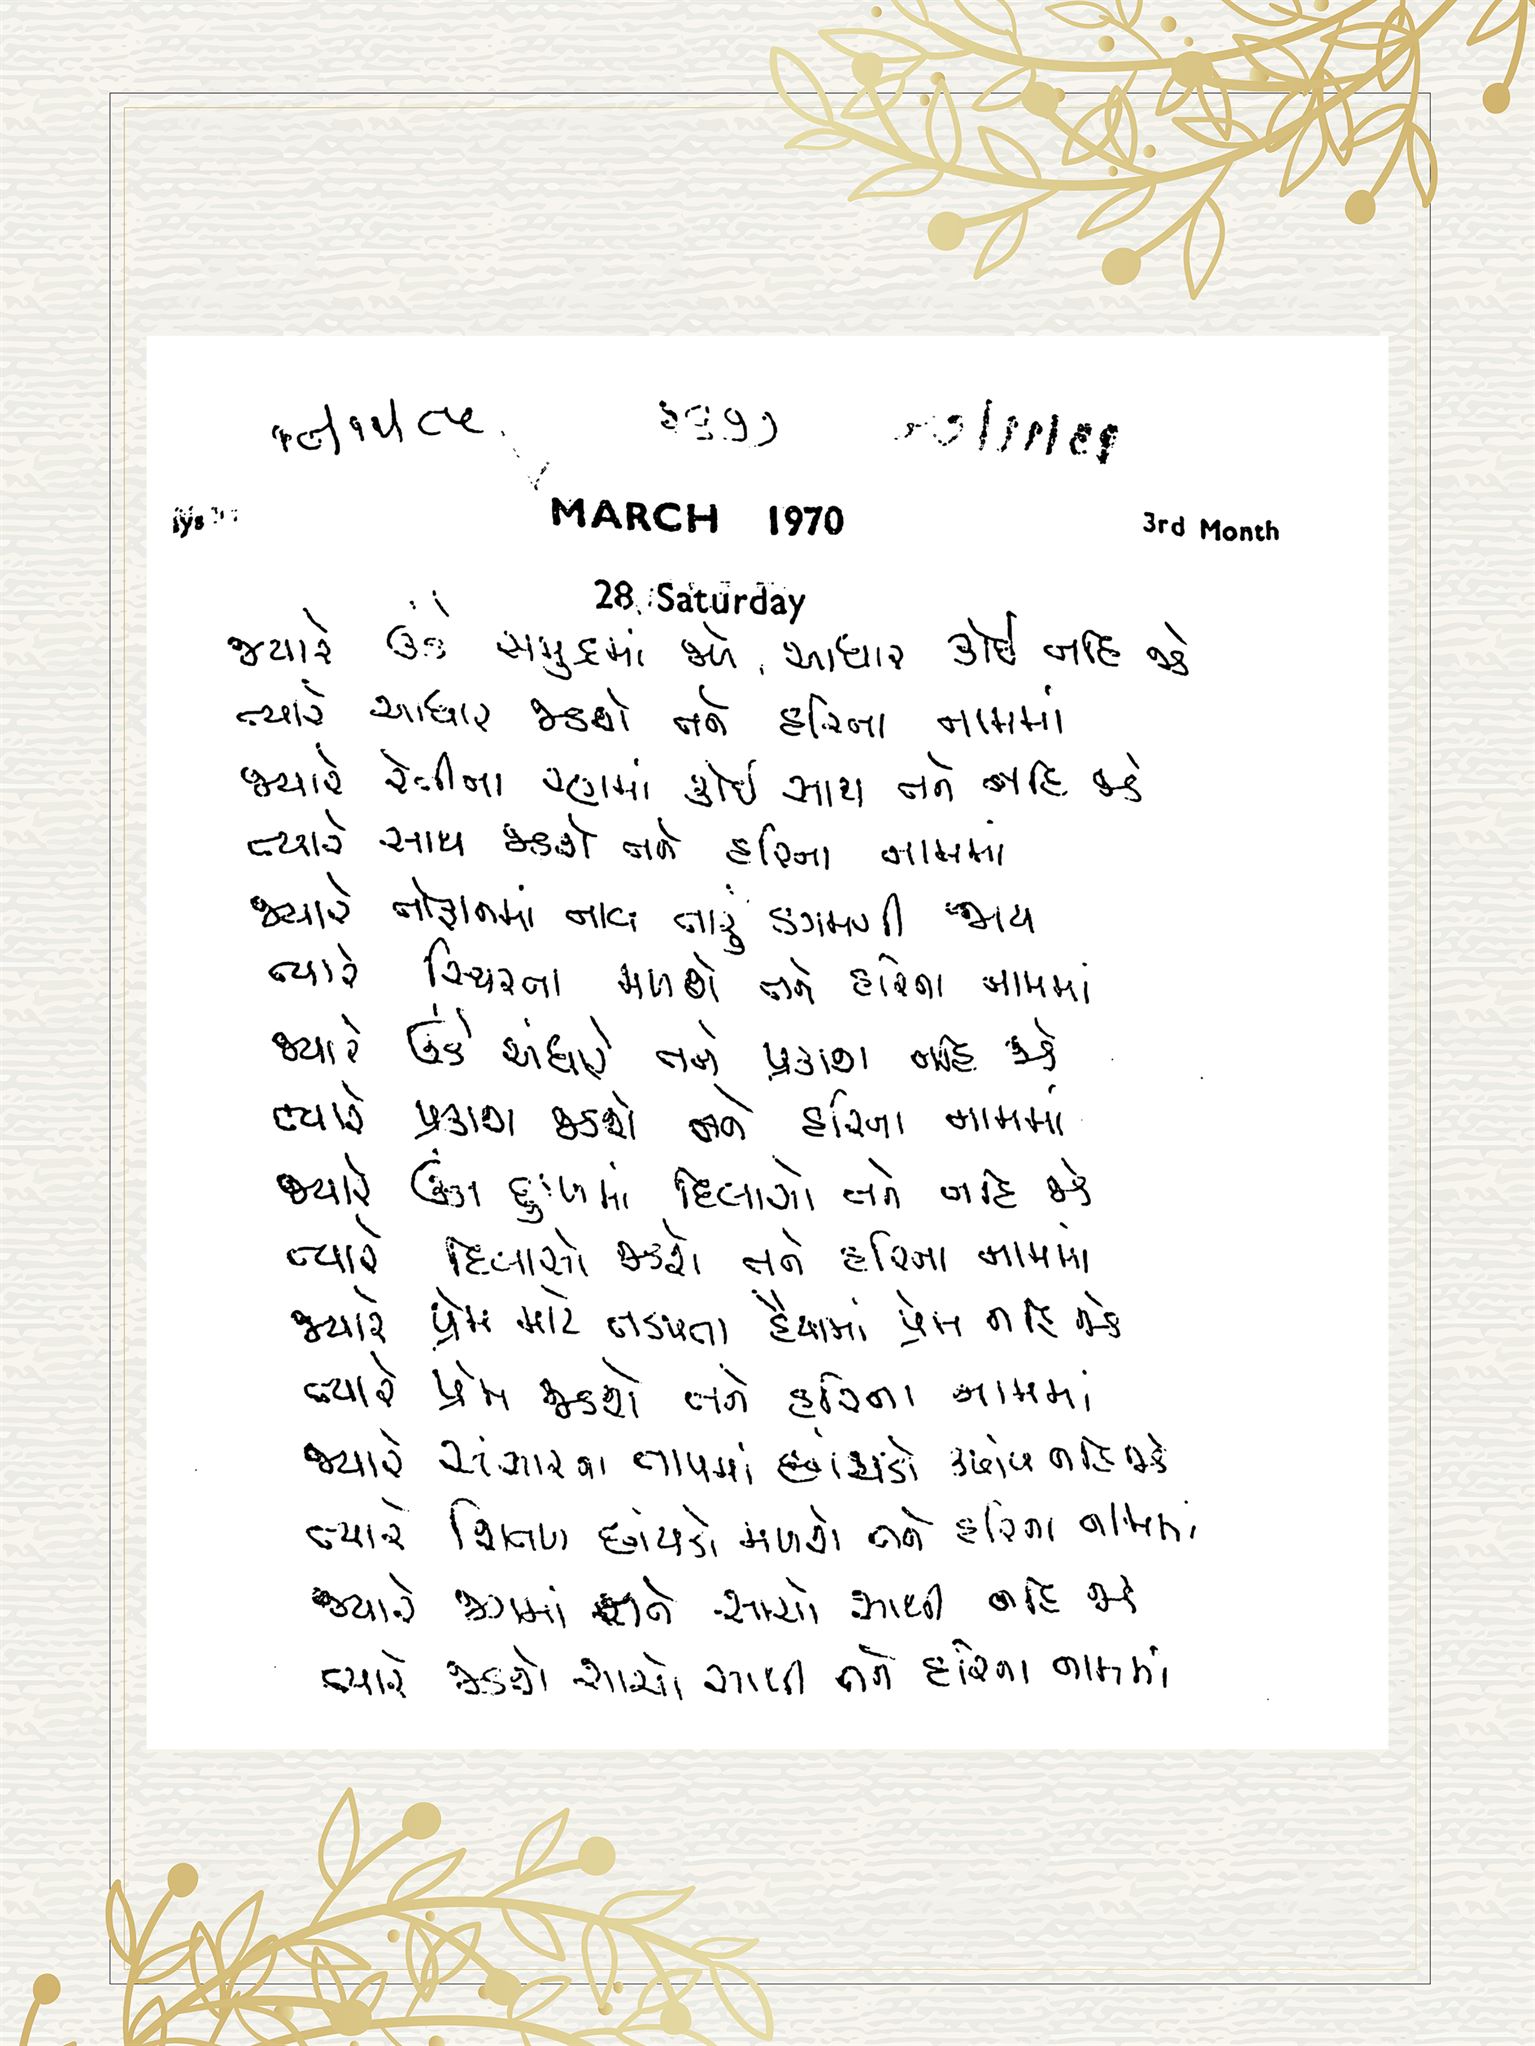 MARCH 1970
3rd Month
28 Saturday
જ્યારે ઉંડે સમુદ્રમાં જળે આધાર કોઈ નહિ જડે
ત્યારે આધાર જડશે તને હરિના નામમાં
જ્યારે રેતીના રણમાં કોઈ સાથ તને નહિ જડે
ત્યારે સાથ જડશે તને હરિના નામમાં
જ્યારે તોફાનમાં નાવ તારું ડગમગી જાય
ત્યારે સ્થિરતા મળશે તને હરિના નામમાં
જ્યારે ઉંડે અંધારે તને પ્રકાશ નહિ જડે
ત્યારે પ્રકાશ જડશે તને હરિના નામમાં
જ્યારે ઉંડા દુઃખમાં દિલાસો તને નહિ જડે
ત્યારે દિલાસો જડશે તને હરિના નામમાં
જ્યારે પ્રેમ માટે તડપતા હૈયામાં પ્રેમ નહિ જડે
ત્યારે પ્રેમ જડશે તને હરિના નામમાં
જ્યારે સંસારના તાપમાં છાંયડો ક્યાંય નહિ જડે
ત્યારે શિતળ છાંયડો મળશે તને હરિના નામમાં
જ્યારે જગમાં તને સાચો સાથી નહિ જડે
ત્યારે જડશે સાચો સાથી તને હરિના નામમાં